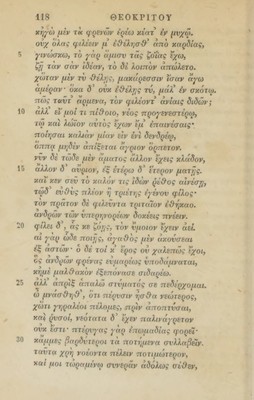 118 ΘΕΟΚΡΙΤΟΥ
κἠγὼ μὲν τὰ φρενῶν ἐρέω κέατ᾽ ἐν μυχῷ.
οὐχ ὅλας φιλέειν μ᾽ ἐθέλησθ᾽ ἀπὸ καρδίας,
5 γινώσκω, τὸ γὰρ ἅμισυ τᾶς ζοΐας ἔχω,
ζῇ τὰν σὰν ἰδέαν, τὸ δὲ λοιπὸν ἀπώλετο.
χὥταν μὲν τὺ θέλῃς, μακάρεσσιν ἴσαν ἄγω
ἁμέραν· ὅκα δ᾽ οὐκ ἐθέλῃς τύ, μάλ᾽ ἐν σκότῳ.
πῶς ταῦτ᾽ ἄρμενα, τὸν φιλέοντ᾽ ἀνίαις διδῶν;
10 ἀλλ᾽ εἴ μοί τι πίθοιο, νέος προγενεστέρῳ,
τῷ καὶ λώϊον αὐτὸς ἔχων ἔμ᾽ ἐπαινέσαις·
ποίησαι καλιὰν μίαν εἰν ἑνὶ δενδρέῳ,
ὅππᾳ μηδὲν ἀπίξεται ἄγριον ὅρπετον.
νῦν δὲ τῶδε μὲν ἄματος ἄλλον ἔχεις κλάδον,
15 ἄλλον δ᾽ αὔριον, ἐξ ἑτέρω δ᾽ ἕτερον ματῇς.
καί κεν σεῦ τὸ καλόν τις ἰδὼν ῥέθος αἰνέσῃ,
τῷδ᾽ εὐθὺς πλέον ἢ τριέτης ἐγένου φίλος·
τὸν πρᾶτον δὲ φιλεῦντα τριταῖον ἐθήκαο.
ἀνδρῶν τῶν ὑπερηνορέων δοκέεις πνέειν.
20 φίλει δ᾽, ἇς κε ζόῃς, τὸν ὕμοιον ἔχειν ἀεί.
αἰ γὰρ ὧδε ποῇς, ἀγαθὸς μὲν ἀκούσεαι
ἐξ ἀστῶν· ὁ δέ τοί κ᾽ ἔρος οὐ χαλεπῶς ἔχοι,
ὃς ἀνδρῶν φρένας εὐμαρέως ὑποδάμναται,
κἠμὲ μαλθακὸν ἐξεπόνασε σιδαρέω.
25 ἀλλ᾽ ἀπρὶξ ἁπαλῶ στύματός σε πεδέρχομαι.
ὦ μνάσθηθ᾽, ὅτι πέρυσιν ἦσθα νεώτερος,
χὥτι γηραλέοι πέλομες, πρὶν ἀποπτύσαι,
καὶ ῥυσοί, νεότατα δ᾽ ἔχεν παλινάγρετον
οὐκ ἔστι· πτέρυγας γὰρ ἐπωμαδίας φορεῖ·
30 κἄμμες βαρδύτεροι τὰ ποτήμενα συλλαβεῖν.
ταῦτα χρὴ νοέοντα πέλειν ποτιμώτερον,
καί μοι τὠραμένῳ συνερᾶν ἀδόλως σέθεν,